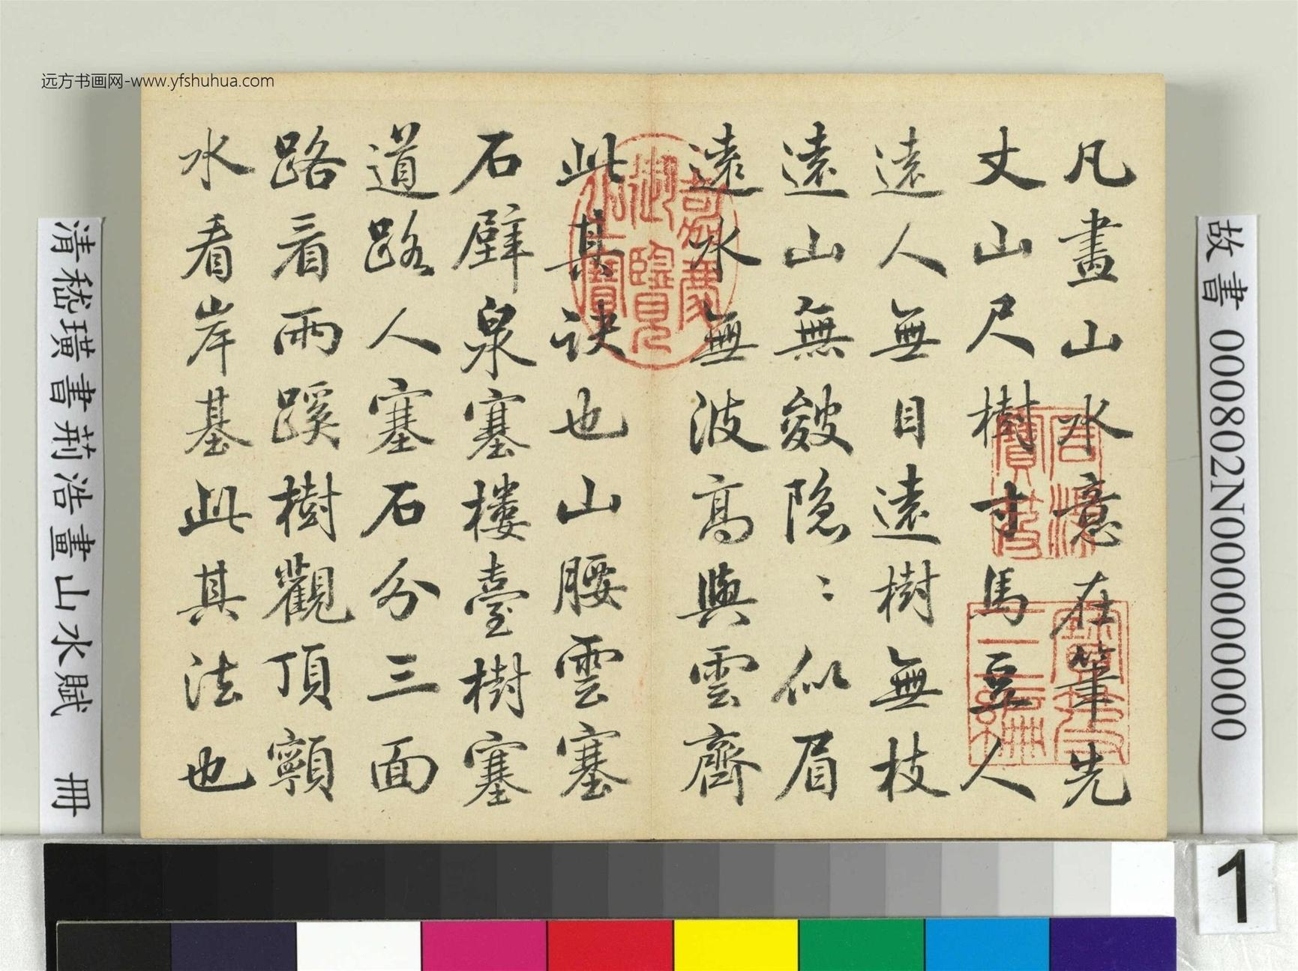 远方书画网-www.yfshuhua.com
凡畫山水意在筆先
丈山尺樹寸馬豆人
遠人無目遠樹無枝
遠山無皴隐〻似眉
遠水無波高與雲齊
此其訣也山腰雲塞
石壁泉塞樓臺樹塞
道路人塞石分三面
路看兩蹊樹觀頂𩕳
水看岸基此其法也
嘉慶御覽之寶
石渠寶笈
寶笈三編
故書 000802N000000000
清嵇璜書荊浩畫山水賦 冊
1